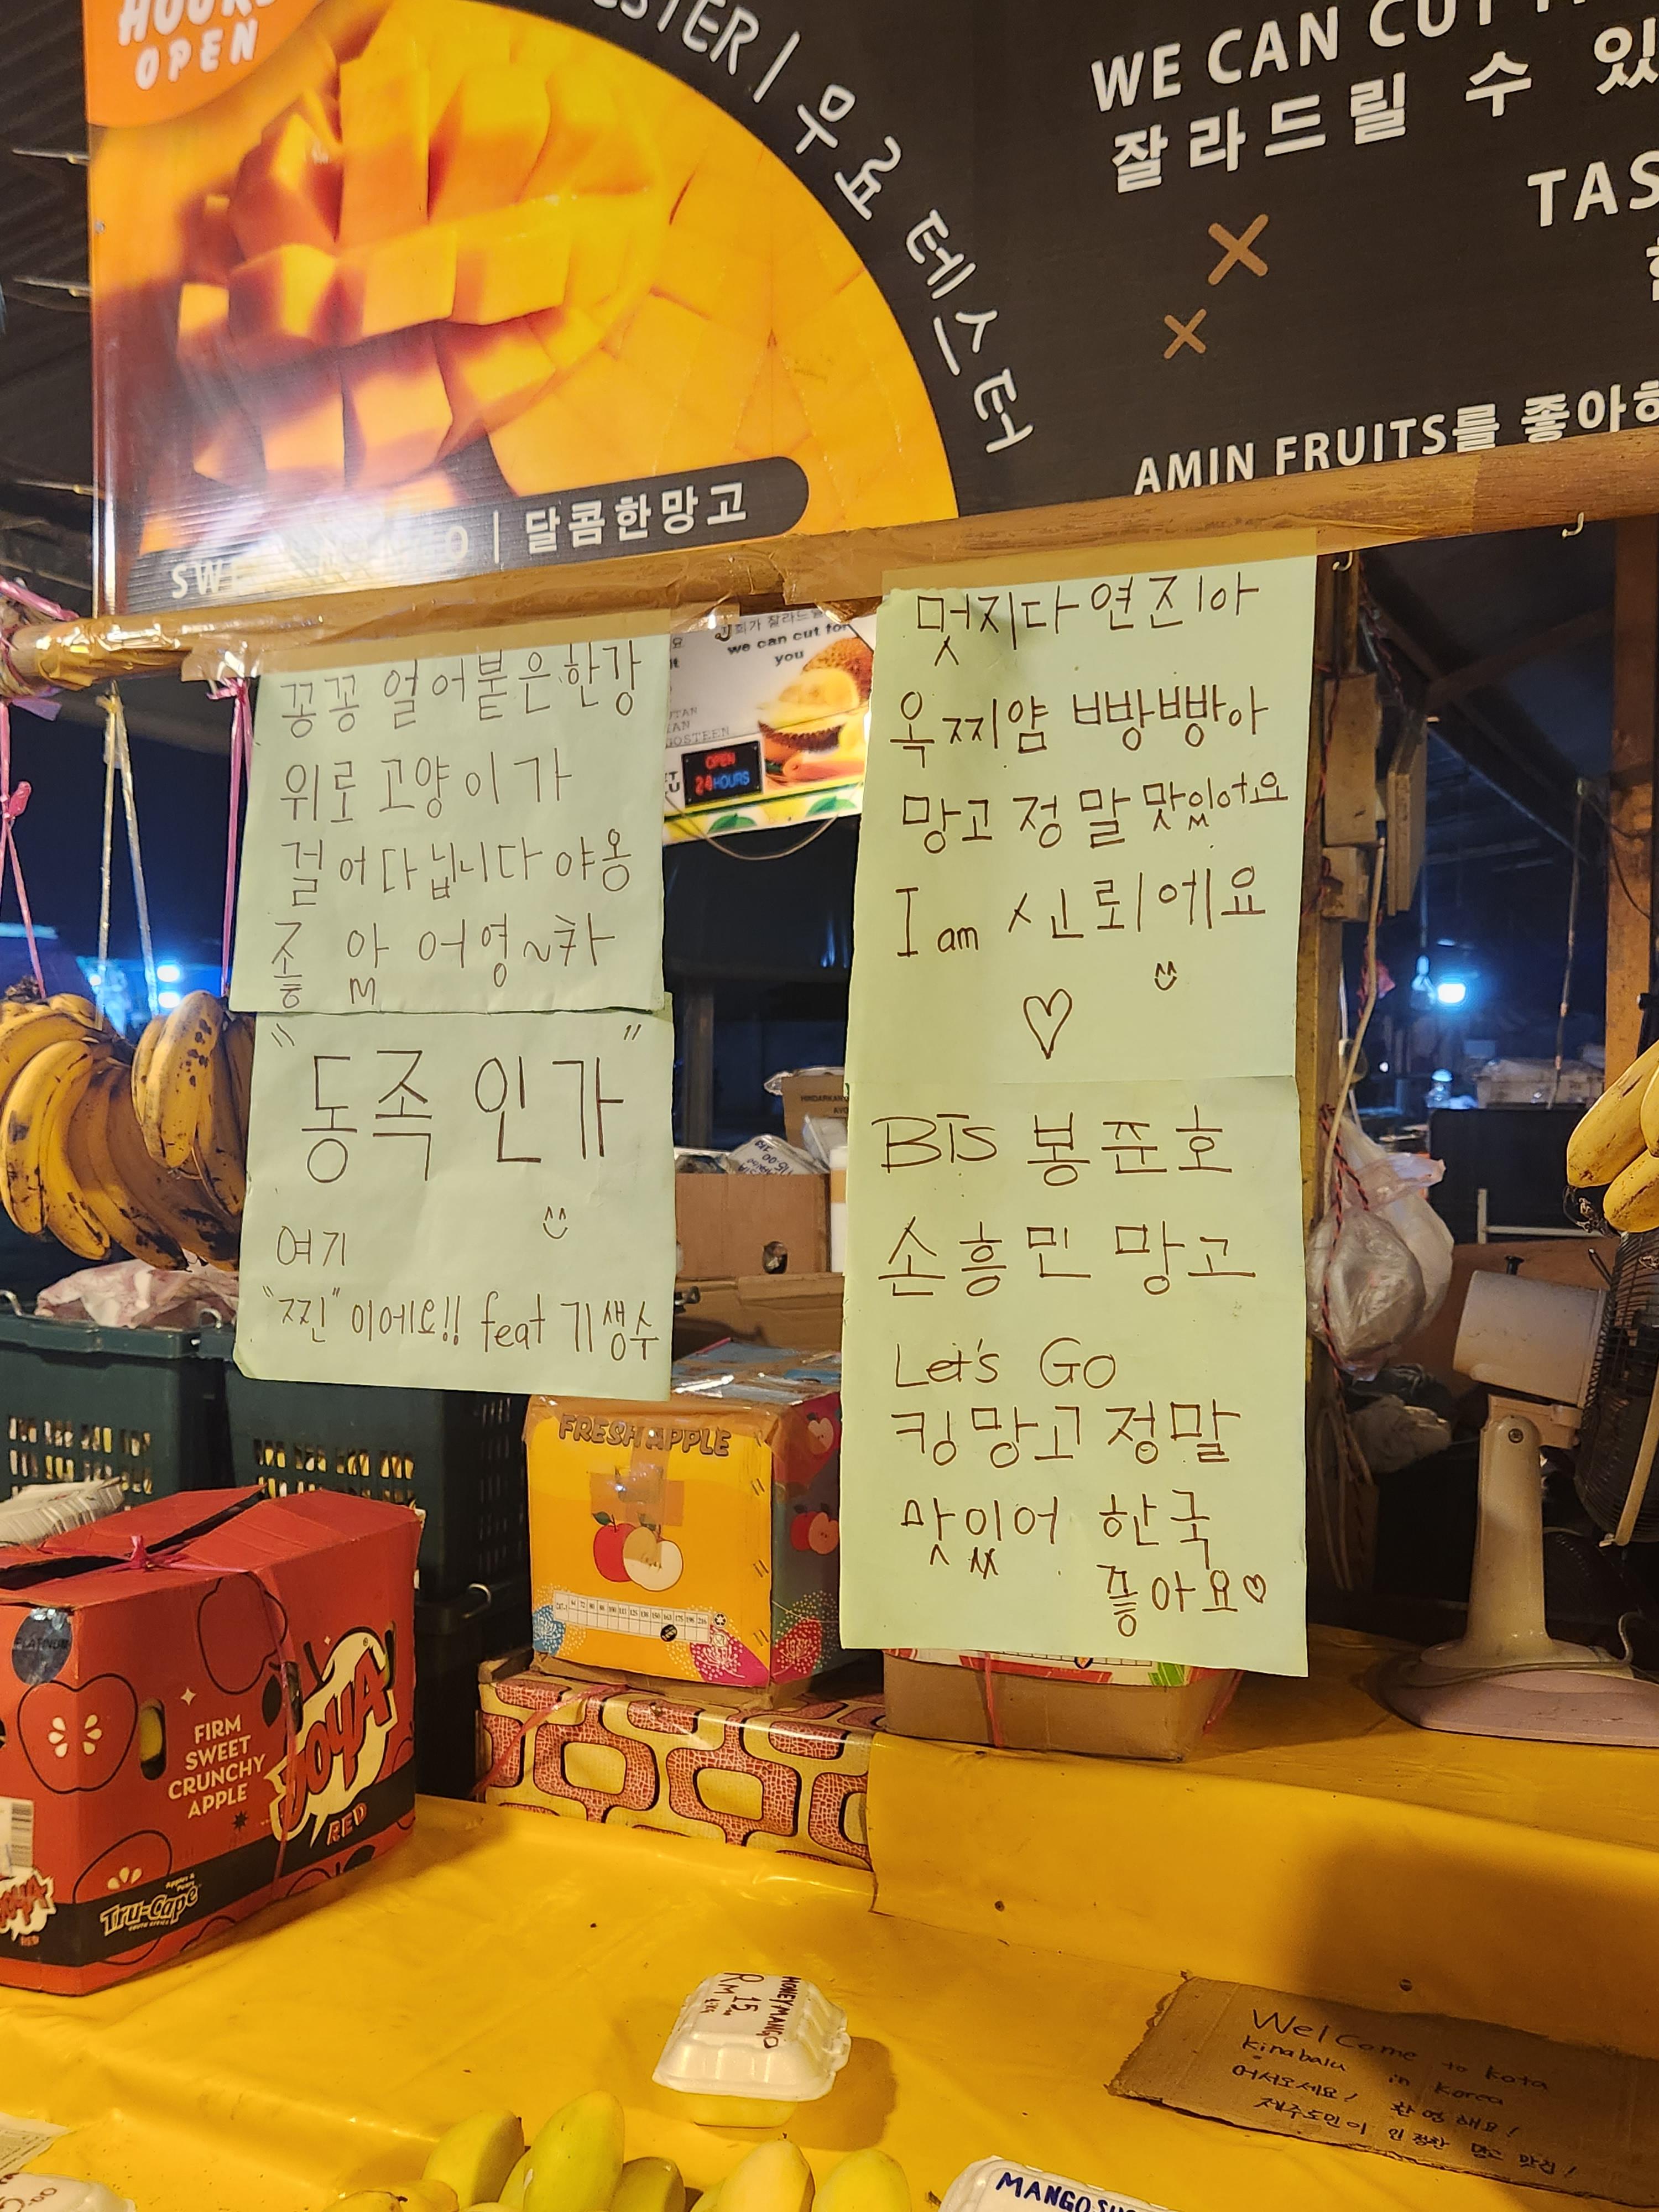 HOURS
OPEN
TESTER | 무료 테스터
WE CAN CUT
잘라드릴 수 있
TAS
AMIN FRUITS를 좋아하
| 달콤한망고
꽁꽁 얼어붙은한강
위로 고양이가
걸어다닙니다 야옹
좋 아 어영~차
"동족인가"
여기
"찌진"이에요!! feat 기생수
we can cut for
you
OPEN
24HOURS
멋지다연진아
옥찌얌 빠방빵아
망고 정말 맛있어요
I am 신뢰에요
BTS 봉쥰호
손흥민 망고
Let's Go
킹망고 정말
맛있어 한국
좋아요♡
FRESH APPLE
PLATINUM
FIRM
SWEET
CRUNCHY
APPLE
JOYA
RED
Apples & Pears
Tru-Cape
SOUTH AFRICA
HONEY MANGO
RM 15
Welcome to Kota
Kinabalu in Korea
어서오세요! 환영해요!
제주도민이 인정한 망고 맛집!